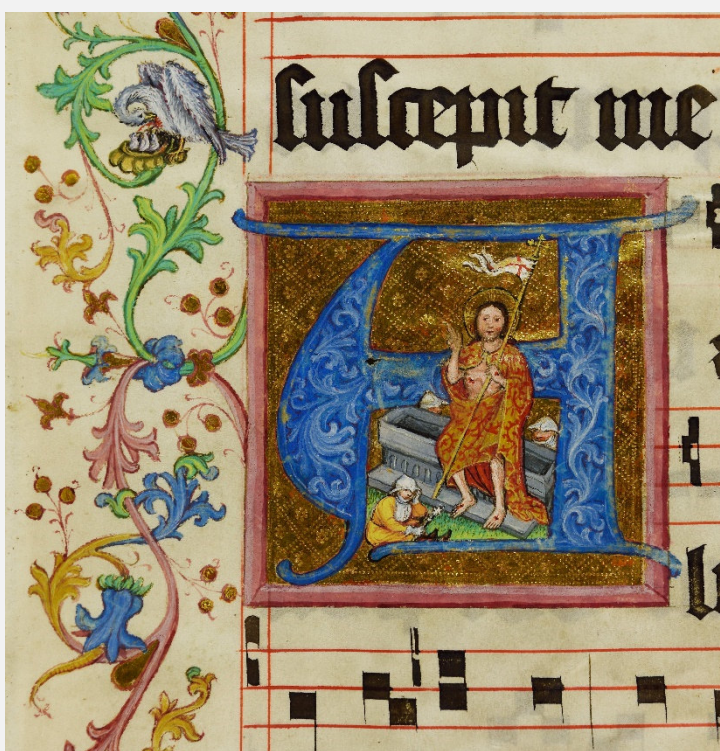 ſuſcepit me
A